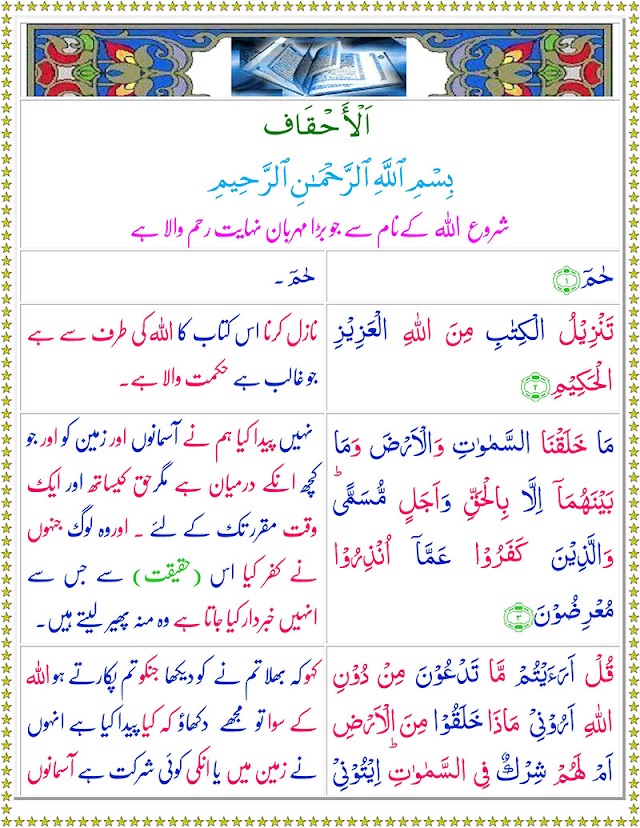 اَلْأَحْقَاف
بِسْمِ ٱللَّهِ ٱلرَّحْمَـٰنِ ٱلرَّحِيمِ
شروع اللہ کے نام سے جو بڑا مہربان نہایت رحم والا ہے
حٰمٓ ۝١
حٰمٓ ۔
تَنْزِيْلُ الْكِتٰبِ مِنَ اللهِ الْعَزِيْزِ
الْحَكِيْمِ ۝٢
نازل کرنا اس کتاب کا اللہ کی طرف سے ہے
جو غالب ہے حکمت والا ہے۔
مَا خَلَقْنَا السَّمٰوٰتِ وَالْاَرْضَ وَمَا
بَيْنَهُمَاۤ اِلَّا بِالْحَقِّ وَاَجَلٍ مُّسَمًّىؕ
وَالَّذِيْنَ كَفَرُوْا عَمَّاۤ اُنْذِرُوْا
مُعْرِضُوْنَ ۝٣
نہیں پیدا کیا ہم نے آسمانوں اور زمین کو اور جو
کچھ انکے درمیان ہے مگر حق کیساتھ اور ایک
وقت مقرر تک کے لئے ۔ اور وہ لوگ جنہوں
نے کفر کیا اس (حقیقت) سے جس سے
انہیں خبردار کیا جاتا ہے وہ منہ پھیر لیتے ہیں۔
قُلْ اَرَءَيْتُمْ مَّا تَدْعُوْنَ مِنْ دُوْنِ
اللهِ اَرُوْنِيْ مَاذَا خَلَقُوْا مِنَ الْاَرْضِ
اَمْ لَهُمْ شِرْكٌ فِي السَّمٰوٰتِؕ اِيْتُوْنِيْ
کہو کہ بھلا تم نے کو دیکھا جنکو تم پکارتے ہو اللہ
کے سوا تو مجھے دکھاؤ کہ کیا پیدا کیا ہے انہوں
نے زمین میں یا انکی کوئی شرکت ہے آسمانوں